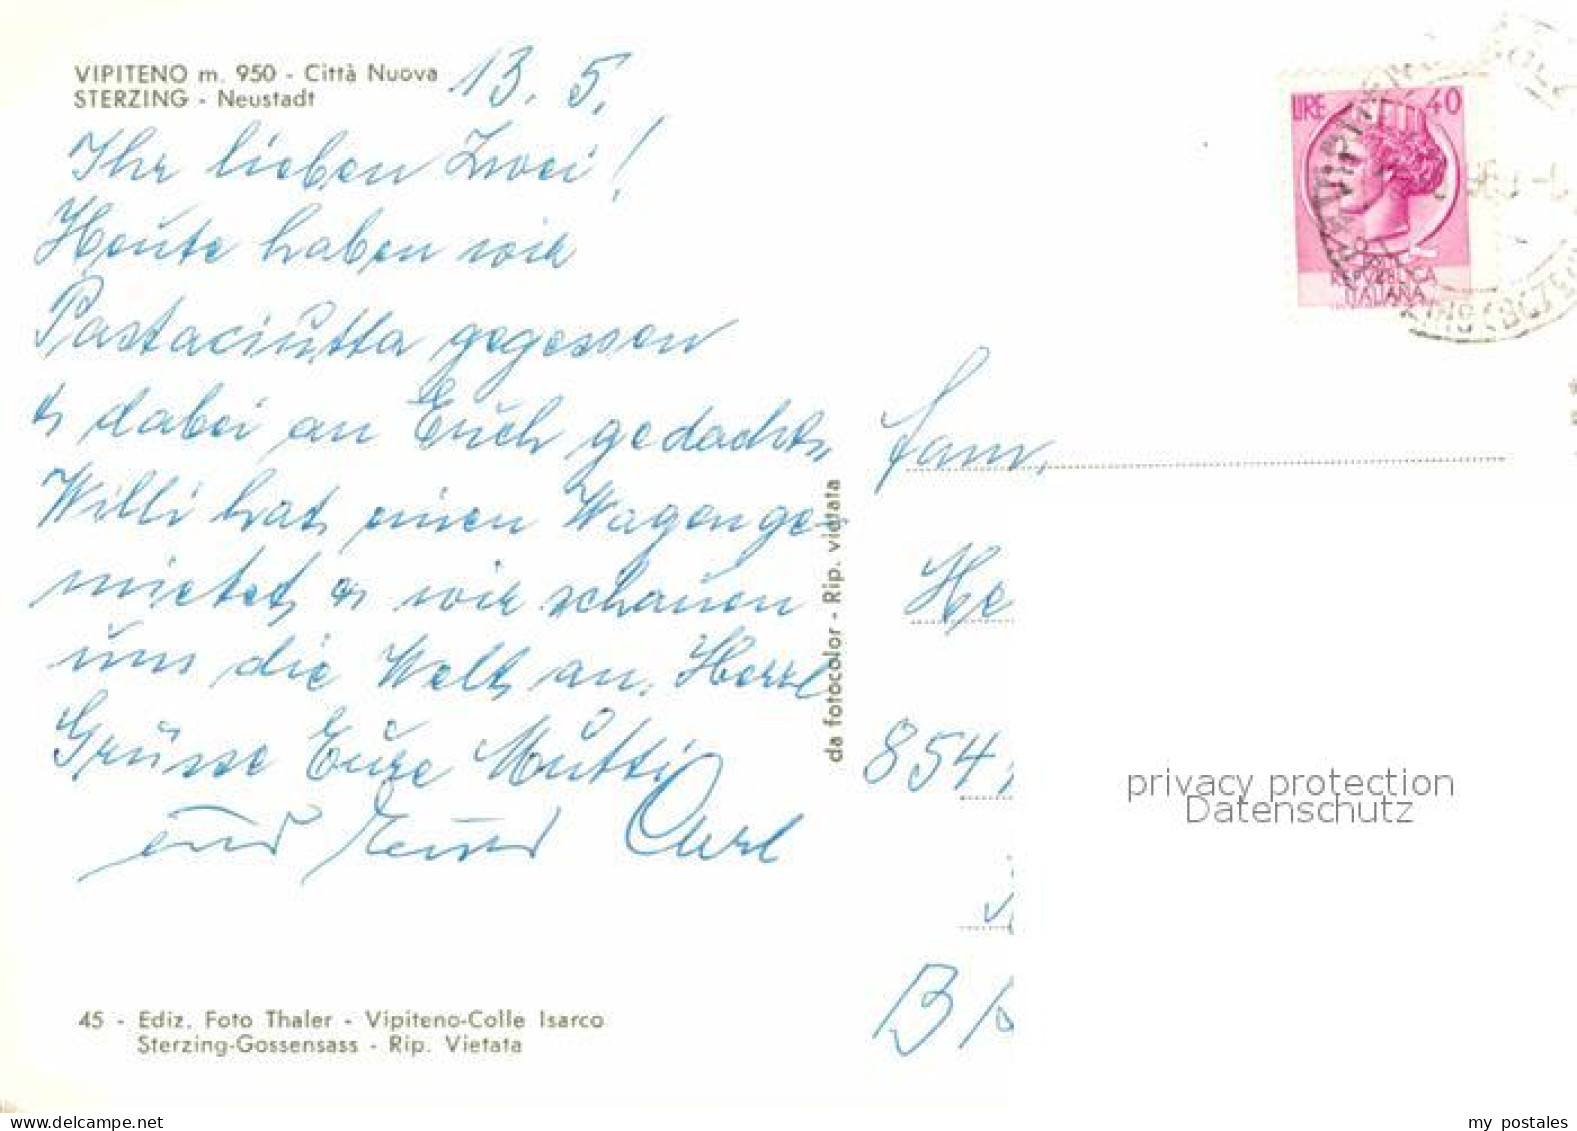 VIPITENO m. 950 - Città Nuova
STERZING - Neustadt
13. 5.
Ihr lieben Zwei!
Heute haben wir
Pastaciutta gegessen
& dabei an Euch gedacht,
Willi hat einen Wagen ge-
mietet & wir schauen
uns die Welt an. Herzl
Grüsse Eure Mutti
und Carl
da fotocolor - Rip. vietata
45 - Ediz. Foto Thaler - Vipiteno-Colle Isarco
Sterzing-Gossensass - Rip. Vietata
LIRE 40
REPVBBLICA
ITALIANA
Fam.
He
854
B
privacy protection
Datenschutz
www.delcampe.net
my postales